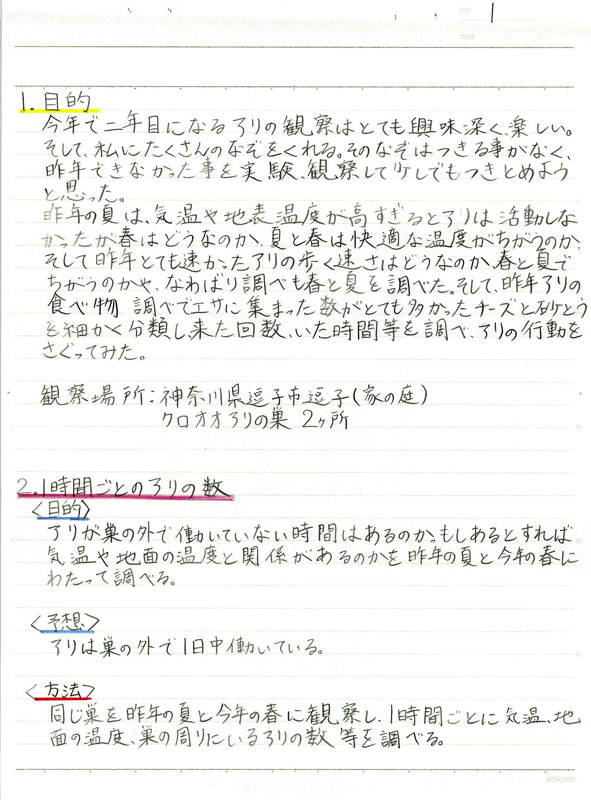 NO.
1
DATE
1. 目的
今年で二年目になるアリの観察はとても興味深く、楽しい。
そして、私にたくさんのなぞをくれる。そのなぞはつきる事がなく、
昨年できなかった事を実験、観察して少しでもつきとめよう
と思った。
昨年の夏は、気温や地表温度が高すぎるとアリは活動しな
かったが春はどうなのか、夏と春は快適な温度がちがうのか、
そして昨年とても速かったアリの歩く速さはどうなのか、春と夏で
ちがうのかや、なわばり調べも春と夏を調べた。そして、昨年アリの
食べ物 調べでエサに集まった数がとても多かったチーズと砂とう
を細かく分類し、来た回数、いた時間等を調べ、アリの行動を
さぐってみた。
観察場所：神奈川県逗子市逗子(家の庭)
クロオオアリの巣 2ヶ所
2. 1時間ごとのアリの数
〈目的〉
アリが巣の外で働いていない時間はあるのか、もしあるとすれば
気温や地面の温度と関係があるのかを昨年の夏と今年の春に
わたって調べる。
〈予想〉
アリは巣の外で1日中働いている。
〈方法〉
同じ巣を昨年の夏と今年の春に観察し、1時間ごとに気温、地
面の温度、巣の周りにいるアリの数 等を調べる。
KOKUYO